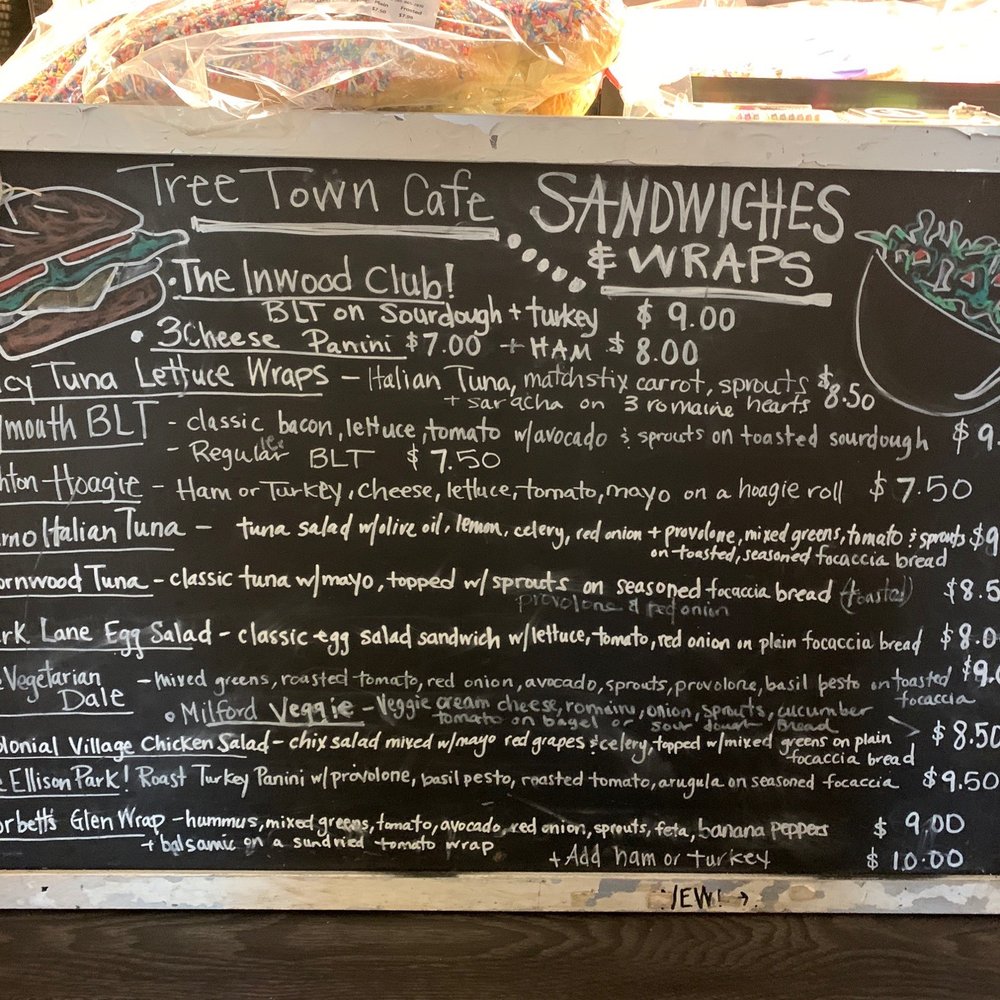 Plain Frosted
$7.50 $7.99
Tree Town Cafe SANDWICHES
& WRAPS
• The Inwood Club!
BLT on Sourdough + turkey $ 9.00
• 3 Cheese Panini $7.00 + HAM $ 8.00
cy Tuna Lettuce Wraps – Italian Tuna, matchstix carrot, sprouts $8.50
+ saracha on 3 romaine hearts
mouth BLT - classic bacon, lettuce, tomato w/avocado & sprouts on toasted sourdough $9.
- Regular BLT $7.50
hton Hoagie – Ham or Turkey, cheese, lettuce, tomato, mayo on a hoagie roll $7.50
rno Italian Tuna – tuna salad w/olive oil, lemon, celery, red onion + provolone, mixed greens, tomato & sprouts $9
on toasted, seasoned focaccia bread
ornwood Tuna – classic tuna w/mayo, topped w/ sprouts on seasoned focaccia bread (toasted) $8.5
provolone & red onion
rk Lane Egg Salad – classic egg salad sandwich w/lettuce, tomato, red onion on plain focaccia bread $8.0
e Vegetarian – mixed greens, roasted tomato, red onion, avocado, sprouts, provolone, basil pesto on toasted $9.0
Dale focaccia
• Milford Veggie – Veggie cream cheese, romaine, onion, sprouts, cucumber
tomato on bagel or sour dough bread
olonial Village Chicken Salad – chix salad mixed w/mayo red grapes & celery, topped w/mixed greens on plain > $8.50
focaccia bread
e Ellison Park! Roast Turkey Panini w/provolone, basil pesto, roasted tomato, arugula on seasoned focaccia $9.50
orbett's Glen Wrap – hummus, mixed greens, tomato, avocado, red onion, sprouts, feta, banana peppers $ 9.00
+ balsamic on a sundried tomato wrap
+ Add ham or turkey $ 10.00
NEW! →